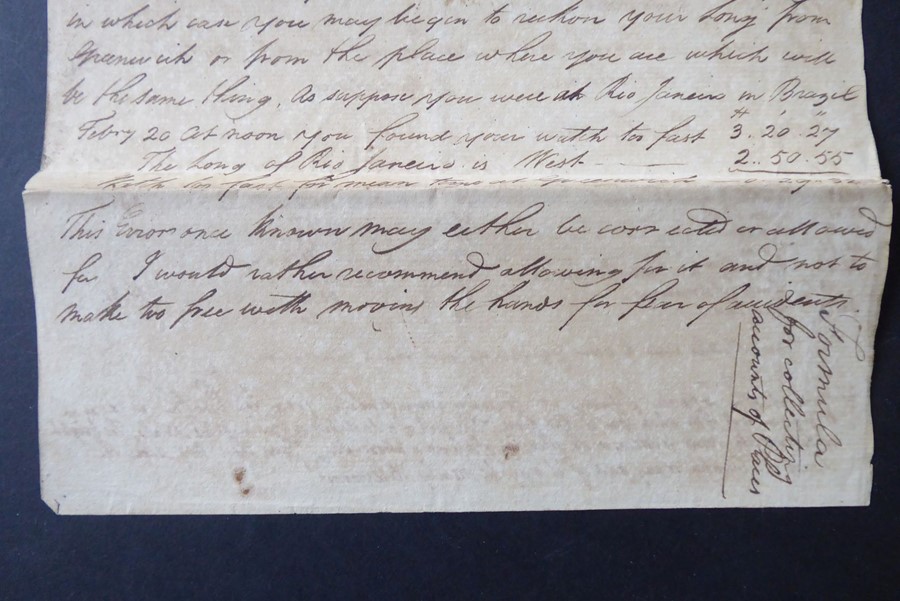 in which case you may begin to reckon your Long from
Greenwich or from the place where you are which will
be the same thing. As suppose you were at Rio Janeiro in Brazil
H ' "
Febry 20 at noon you found your watch too fast 3. 20. 27
The Long of Rio Janeiro is West 2. 50. 55
too fast for mean time at Greenwich
This Error once Known may either be corrected or allowed
for I would rather recommend allowing for it and not to
make too free with moving the hands for fear of accidents
Formula
for collecting
accounts of Places